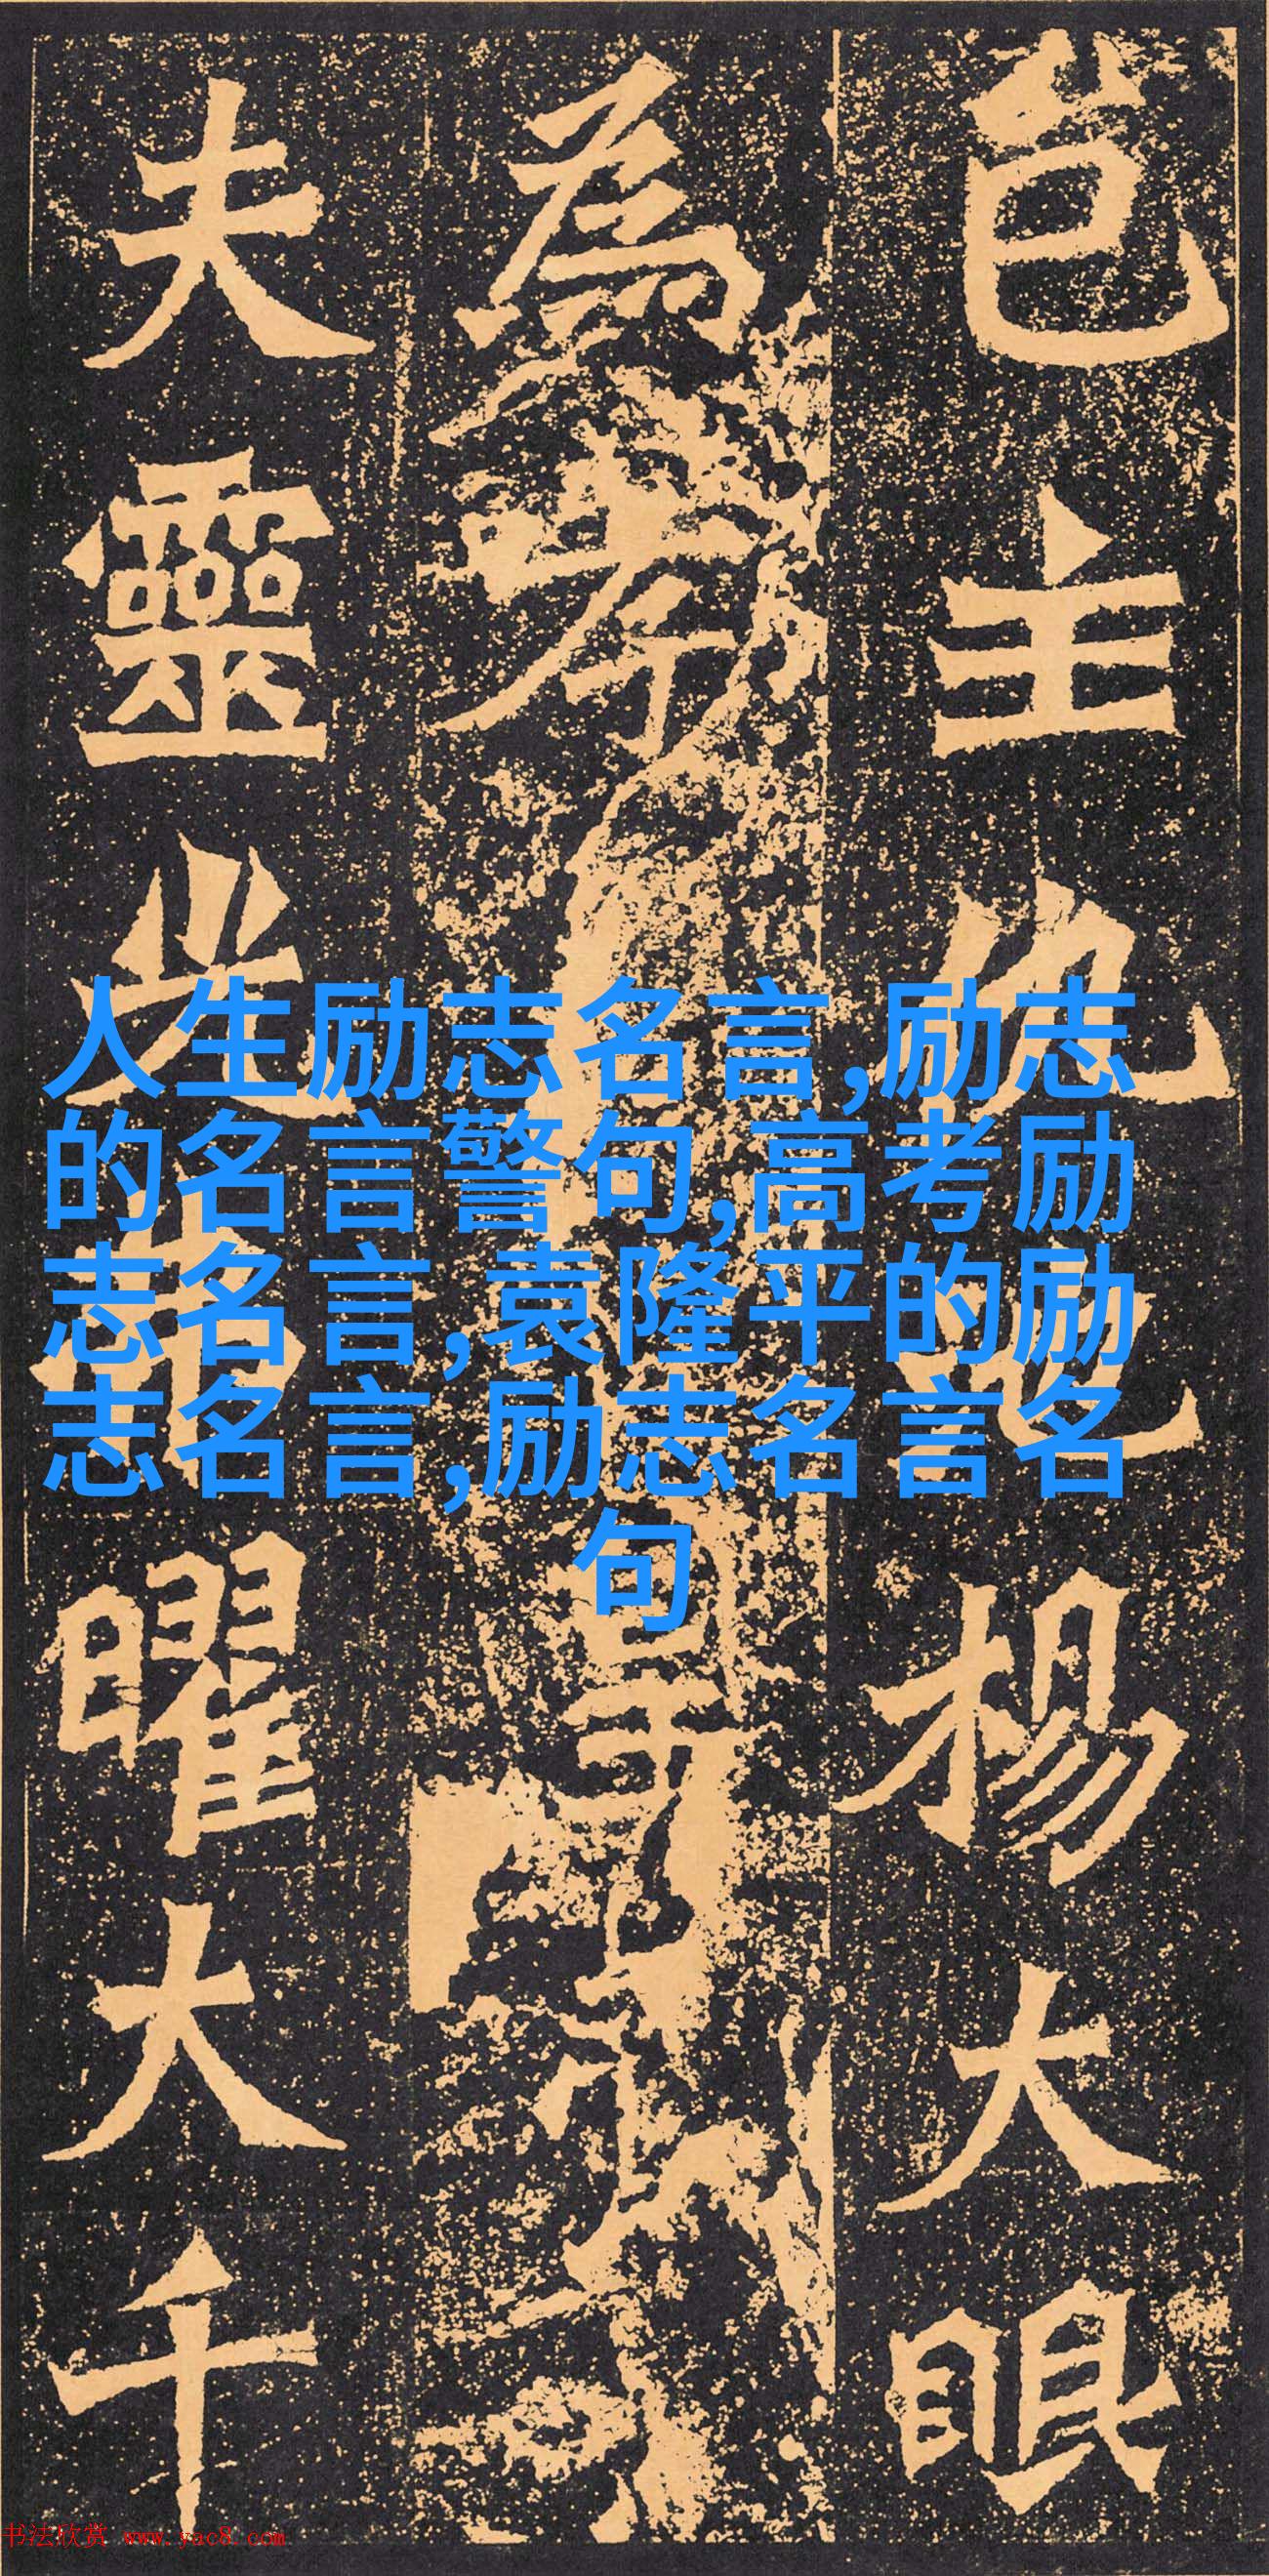 邑主仇池楊大眼
為孝
夫靈光弗曜大千
人生励志名言,励志
的名言警句,高考励
志名言,袁隆平的励
志名言,励志名言名
句
书法欣赏 www.yac8.com